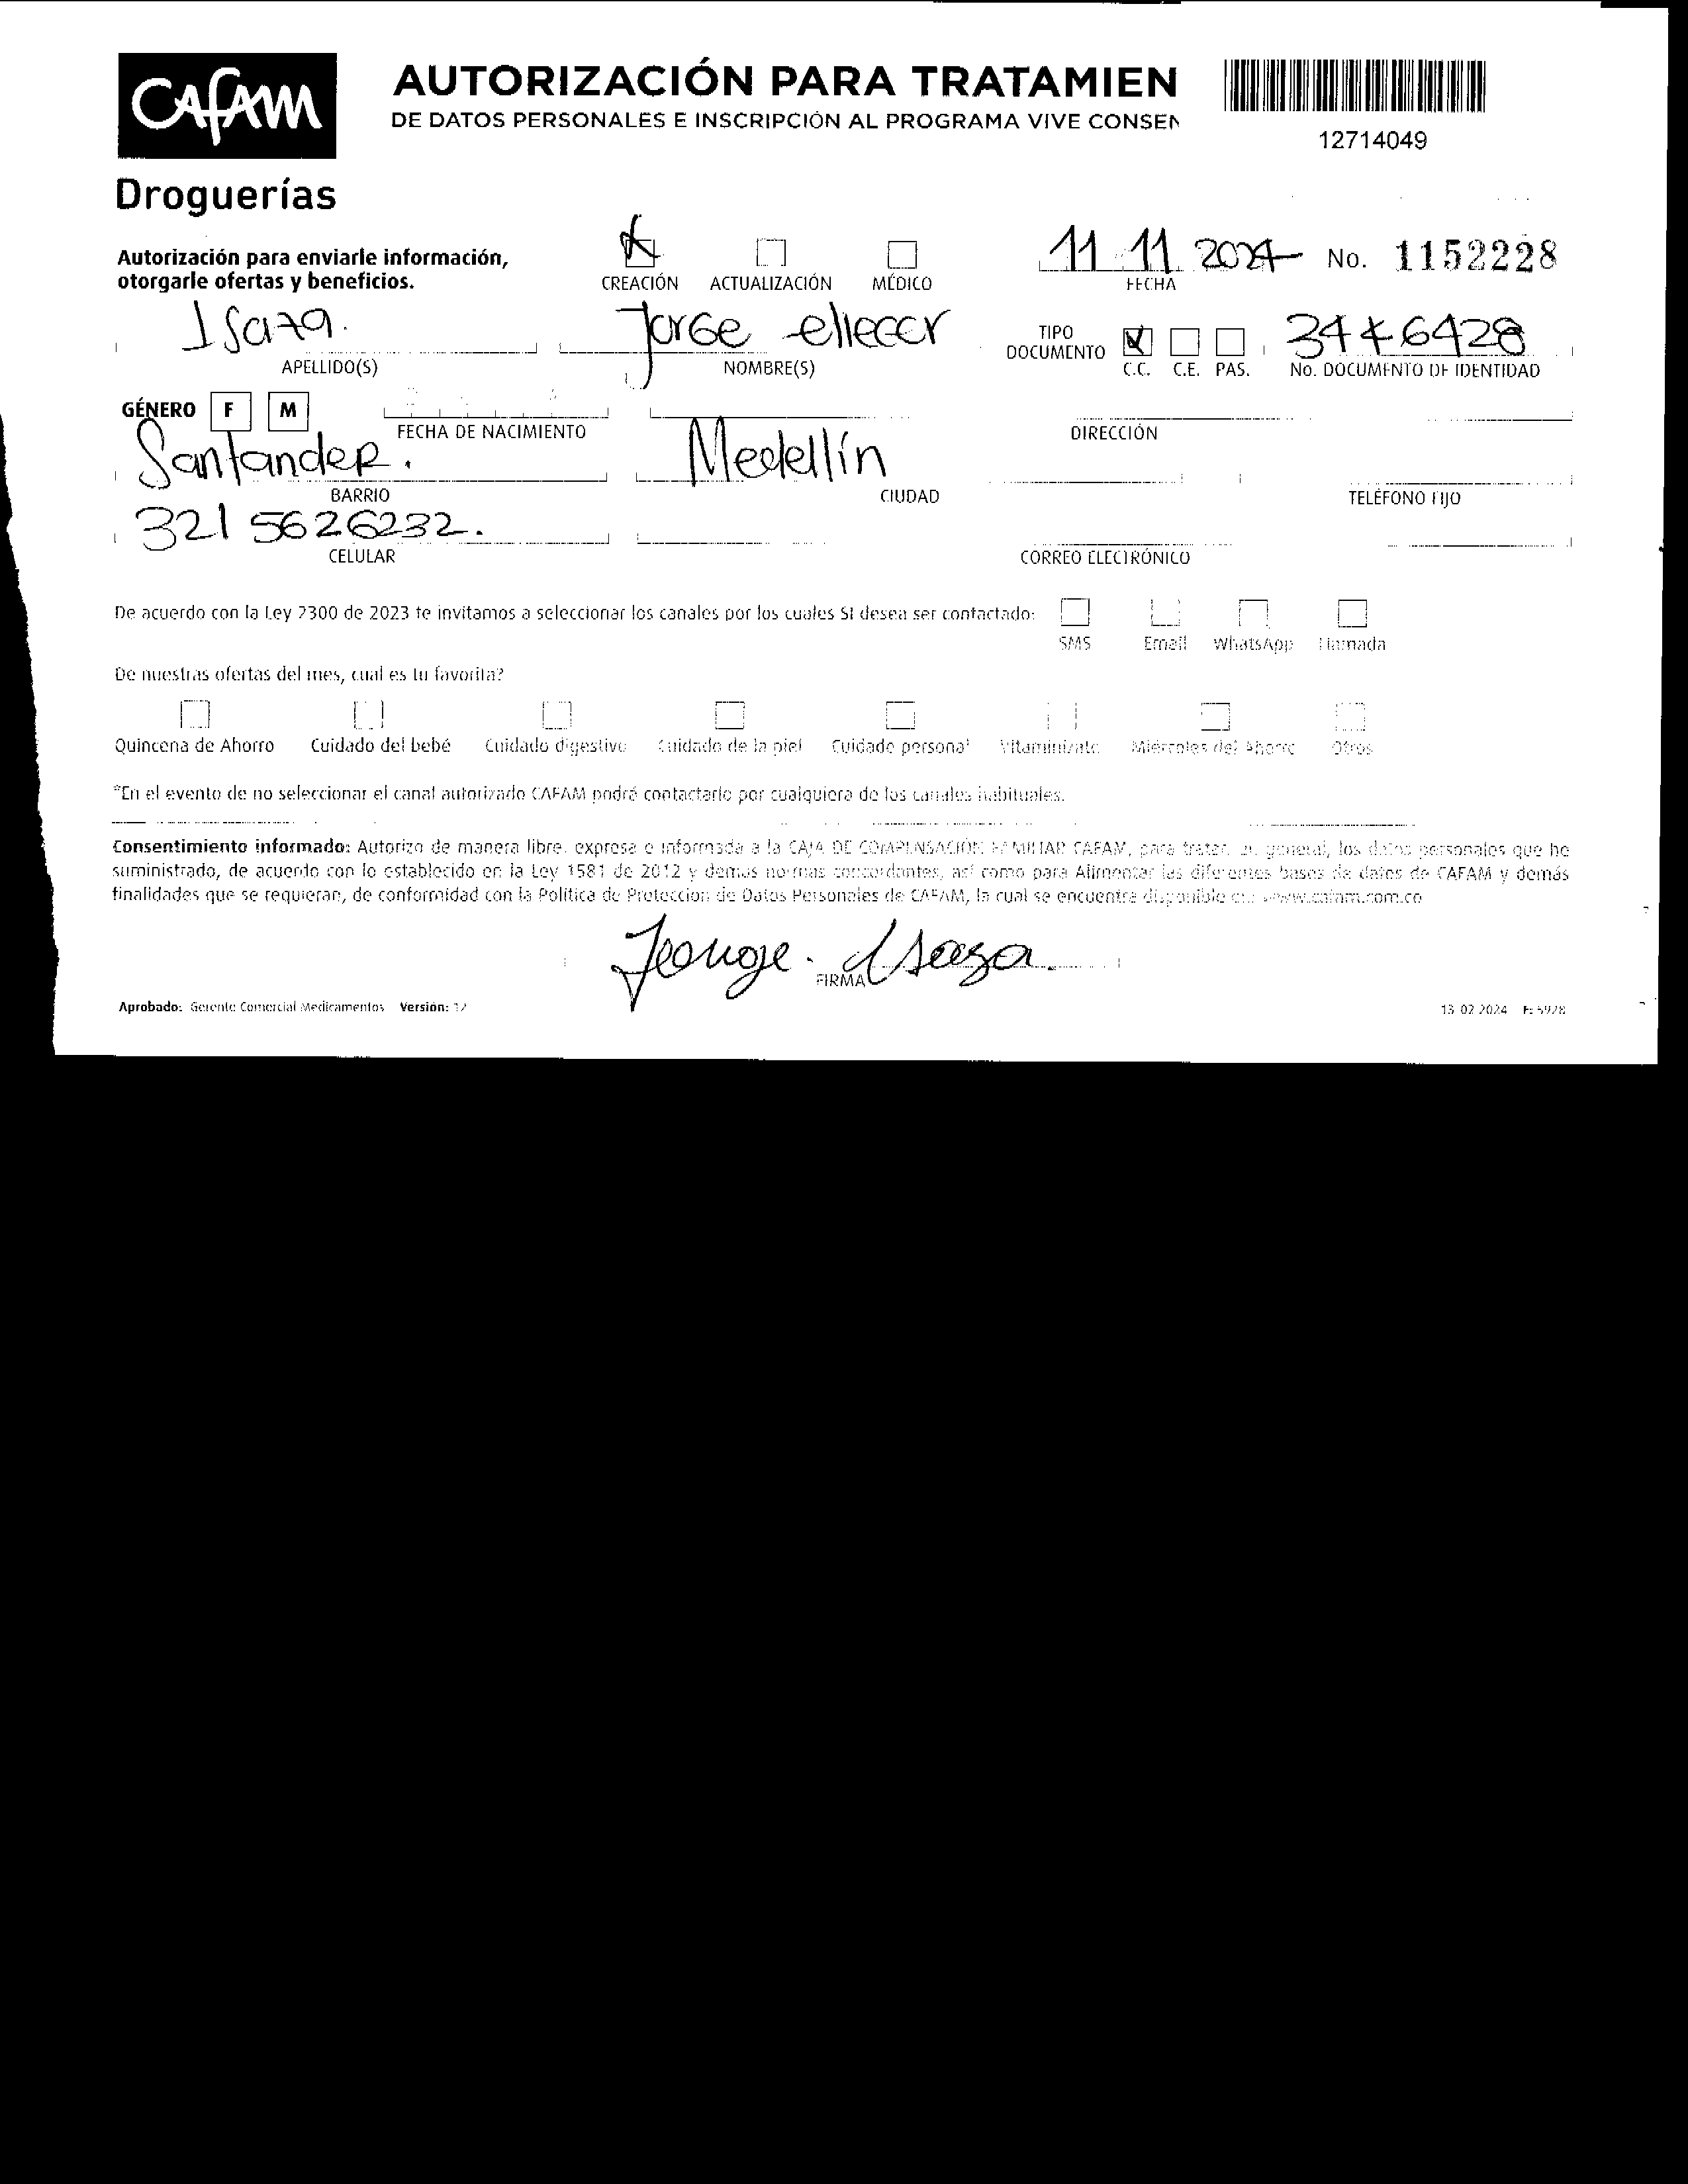 CAFAM
AUTORIZACIÓN PARA TRATAMIEN
DE DATOS PERSONALES E INSCRIPCIÓN AL PROGRAMA VIVE CONSEN
12714049
Droguerías
Autorización para enviarle información,
otorgarle ofertas y beneficios.
CREACIÓN ACTUALIZACIÓN MÉDICO
11 11 2024 No. 1152228
FECHA
Isaza. Jorge eliecer
APELLIDO(S) NOMBRE(S)
TIPO DOCUMENTO C.C. C.E. PAS.
No. DOCUMENTO DE IDENTIDAD
GÉNERO F M
FECHA DE NACIMIENTO DIRECCIÓN
Santander. Medellín
BARRIO CIUDAD TELÉFONO FIJO
321 5626232.
CELULAR CORREO ELECTRÓNICO
De acuerdo con la Ley 2300 de 2023 te invitamos a seleccionar los canales por los cuales SI desea ser contactado:
SMS Email WhatsApp Llamada
De nuestras ofertas del mes, cual es tu favorita?
Quincena de Ahorro Cuidado del bebé Cuidado digestivo Cuidado de la piel Cuidado personal Vitamínizate Miércoles del Ahorro Otros
*En el evento de no seleccionar el canal autorizado CAFAM podrá contactarlo por cualquiera de los canales habituales.
Consentimiento informado: Autorizo de manera libre, expresa e informada a la CAJA DE COMPENSACIÓN FAMILIAR CAFAM, para tratar, en general, los datos personales que he
suministrado, de acuerdo con lo establecido en la Ley 1581 de 2012 y demás normas concordantes, así como para Alimentar las diferentes bases de datos de CAFAM y demás
finalidades que se requieran, de conformidad con la Política de Protección de Datos Personales de CAFAM, la cual se encuentra disponible en: www.cafam.com.co
Jorge. Isaza.
FIRMA
Aprobado: Gerente Comercial Medicamentos Versión: 12
13 02 2024 F: 5928